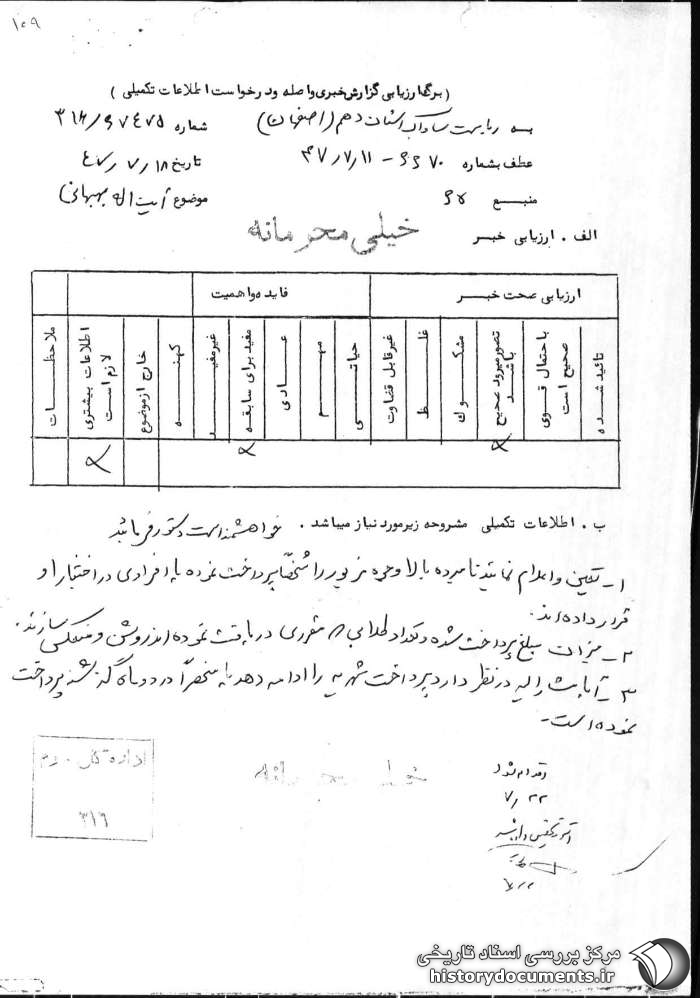 ۱۰۹
( برگه ارزیابی گزارش خبری واصله و درخواست اطلاعات تکمیلی )
به ریاست ساواک استان دهم (اصفهان) شماره ۳۱۶/۶۷۴۷۵
عطف بشماره ۶۶۷۰ - ۴۷/۷/۱۱ تاریخ ۴۷/۷/۱۸
منبع موضوع آیت اله بهبهانی
خیلی محرمانه
الف . ارزیابی خبر
ارزیابی صحت خبر فایده و اهمیت
تائید شده
با حتمال قوی صحیح است
تصور میرود صحیح باشد
مشکوک
غلط
غیر قابل قضاوت
حیاتی
مهم
عادی
مفید برای سابقه
غیر مفید
کهنه
خارج از موضوع
اطلاعات بیشتری لازم است
ملاحظات
ب . اطلاعات تکمیلی مشروحه زیر مورد نیاز میباشد . خواهشمند است دستور فرمائید
۱ - تعیین و اعلام نمایند نامبرده بالا وجوه مزبور را شخصاً پرداخت نموده یا افرادی در اختیار او
قرار داده اند .
۲ - میزان مبلغ پرداخت شده و تعداد طلابی که مقرری دریافت نموده اند روشن و منعکس سازند .
۳ - آیا مشارالیه در نظر دارد پرداخت شهریه را ادامه دهد یا منحصراً در دو ماه گذشته پرداخت
نموده است .
اداره کل سوم
۳۱۶
خیلی محرمانه
اقدام شود
۷/۲۲
مرکز بررسی اسناد تاریخی
historydocuments.ir